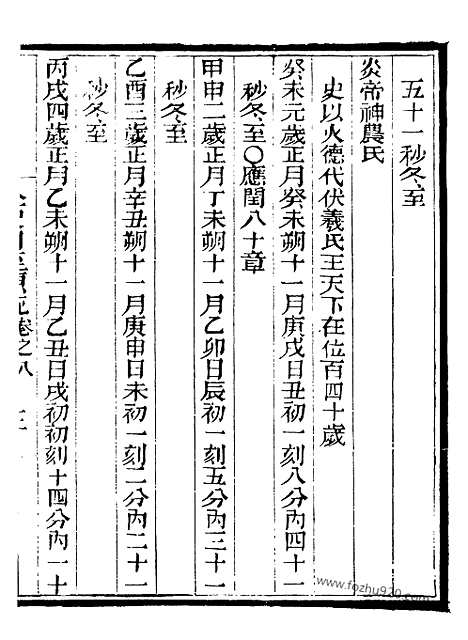 五十一秒冬至
炎帝神農氏
史以火德代伏羲氏王天下在位百四十歲
癸未元歲正月癸未朔十一月庚戌日丑初一刻八分內四十一
秒冬至○應閏八十章
甲申二歲正月丁未朔十一月乙卯日辰初一刻五分內三十一
秒冬至
乙酉三歲正月辛丑朔十一月庚申日未初一刻二分內二十一
秒冬至
丙戌四歲正月乙未朔十一月乙丑日戌初初刻十四分內一十
卷之八
www.fozhu920.com